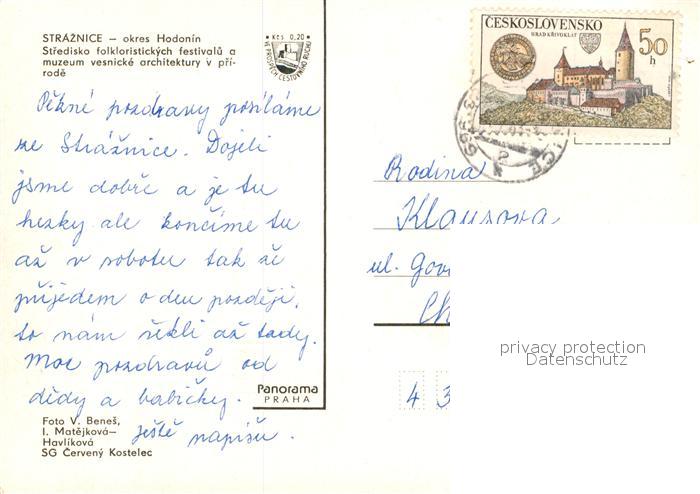 STRÁŽNICE – okres Hodonín
Středisko folkloristických festivalů a
muzeum vesnické architektury v pří-
rodě
Kčs 0,20
VE PROSPĚCH CESTOVNÍHO RUCHU
ČESKOSLOVENSKO
HRAD KŘIVOKLÁT
50
h
Pěkné pozdravy posíláme
ze Strážnice. Dojeli
jsme dobře a je tu
hezky ale končíme tu
až v sobotu tak že
přijedem o den později,
to nám řekli až tady.
Moc pozdravů od
dědy a babičky.
ještě napíšu.
Rodina
Klausova
ul.
4 3
privacy protection
Datenschutz
Panorama
PRAHA
Foto V. Beneš,
I. Matějková–
Havlíková
SG Červený Kostelec